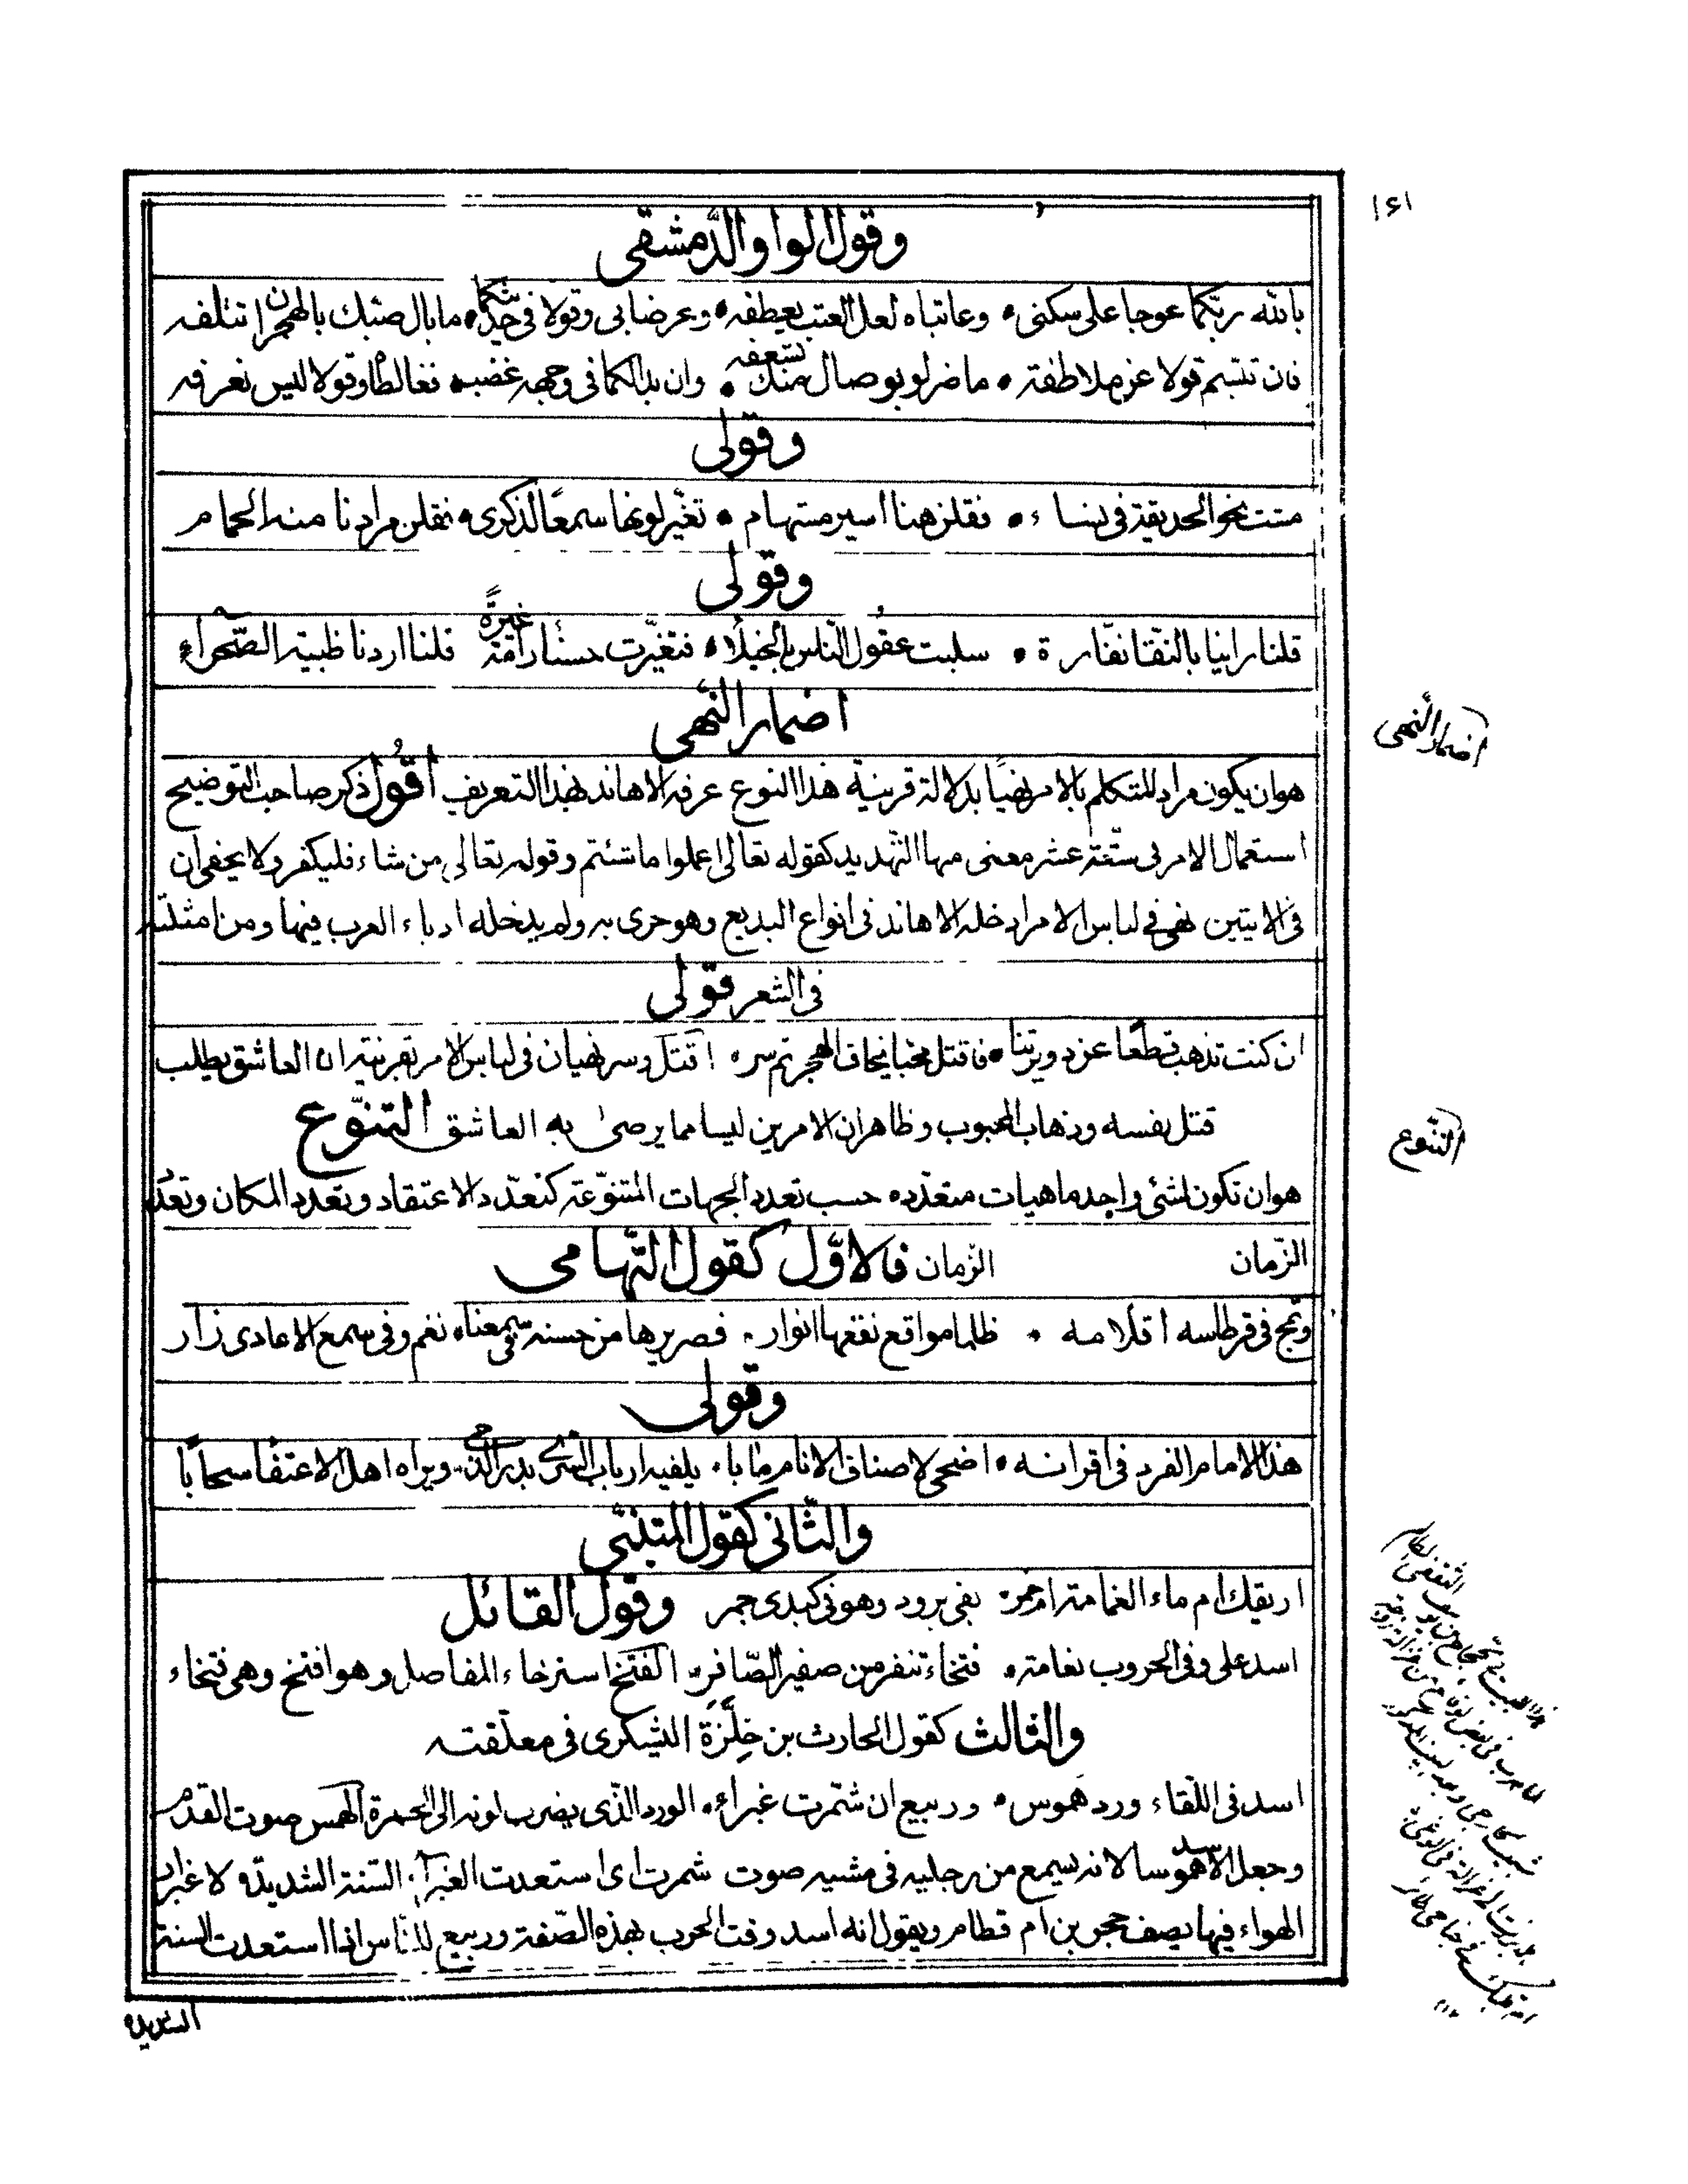 ١٤١
وقول الواو والدّمشقى
بالله ربّكما عوجا على سكنى • وعاتباه لعل العتب يعطفه • وعرضا بى وقولا فى حديثكما • ما بال صبّك بالهجران تتلفه
فان تبسّم قولا عن ملاطفة • ما ضر لو بوصال منك تسعفه • وان بدا لكما فى وجهه غضب • فغالطا وقولا ليس نعرفه
وقولى
مشت نحو الحديقة فى نساء • فقلن هنا اسير مستهام • تغيّر لونها سمعًا لذكرى • فقلن مرادنا منه الحمام
وقولى
قلنا راينا بالنّقا نفّارة • سلبت عقول النّاس بالخيلاء • فتغيّرت حسناء رامة غيرةً قلنا اردنا ظبية الصّحراء
اضمار النّهى
هو ان يكون مراد المتكلم بالامر نهيًا بدلالة قرينة هذا النوع عرفه الاهاند بهذا التعريف اقُول ذكر صاحب التوضيح
استعمال الامر فى ستّة عشر معنى منها التّهديد كقوله تعالى اعملوا ما شئتم وقوله تعالى من شاء فليكفر ولا يخفى ان
فى الايتين نهى فى لباس الامر ادخله الاهاند فى انواع البديع وهو حرى به ولم يدخله ادباء العرب فيها ومن امثلته
فى الشعر قولى
ان كنت تذهب قطعًا عن دويرتنا • فاقتل محبا يخاف الهجر ثم سر • اقتل وسر نهيان فى لباس الامر بقرينة ان العاشق يطلب
قتل نفسه وذهاب المحبوب وظاهر ان الامرين ليسا مما يرضىٰ به العاشق التنوّع
هو ان تكون لشئ واحد ماهيات متعدّده حسب تعدد الجهات المتنوّعة كتعدّد الاعتقاد وتعدد المكان وتعدّد
الزّمان الزّمان فالاوّل كقول التّهامى
وتمج فى قرطاسه اقلامه • ظلما مواقع نفعها انوار • فصريرها من حسنه فى سمع معناه نغم وفى سمع الاعادى زار
وقولى
هذا الامام الفرد فى اقرانه • اضحى لاصناف الانام مآبا • يلفيه ارباب السّرى بدر الدّجى • ويراه اهل الاعتفا سحابًا
والثّانى كقول المتنبّى
اريقك ام ماء الغمامة ام خمر • بفى برود وهو فى كبدى جمر وقول القائل
اسد على وفى الحروب نعامة • فتخاء تنفر من صفير الصّافر • الفتخ استرخاء المفاصل وهو افتخ وهى فتخاء
والثالث كقول الحارث بن حِلِّزَة اليشكرى فى معلّقته
اسد فى اللّقاء ورد هَموس • وربيع ان شمّرت غبراء • الورد الذّى يضرب لونه الى الحمرة الهمس صوت القدم
وجعل الاسد هموسا لانه يسمع من رجليه فى مشيه صوت شمرت اى استعدت الغبراء السّنة الشديدّه لاغبرار
الهواء فيها يصف حجر بن ام قطام ويقول انه اسد وقت الحرب بهذه الصّفة وربيع للنّاس اذا استعدت السنة
الشديده
اضمار النّهى
التنّوع